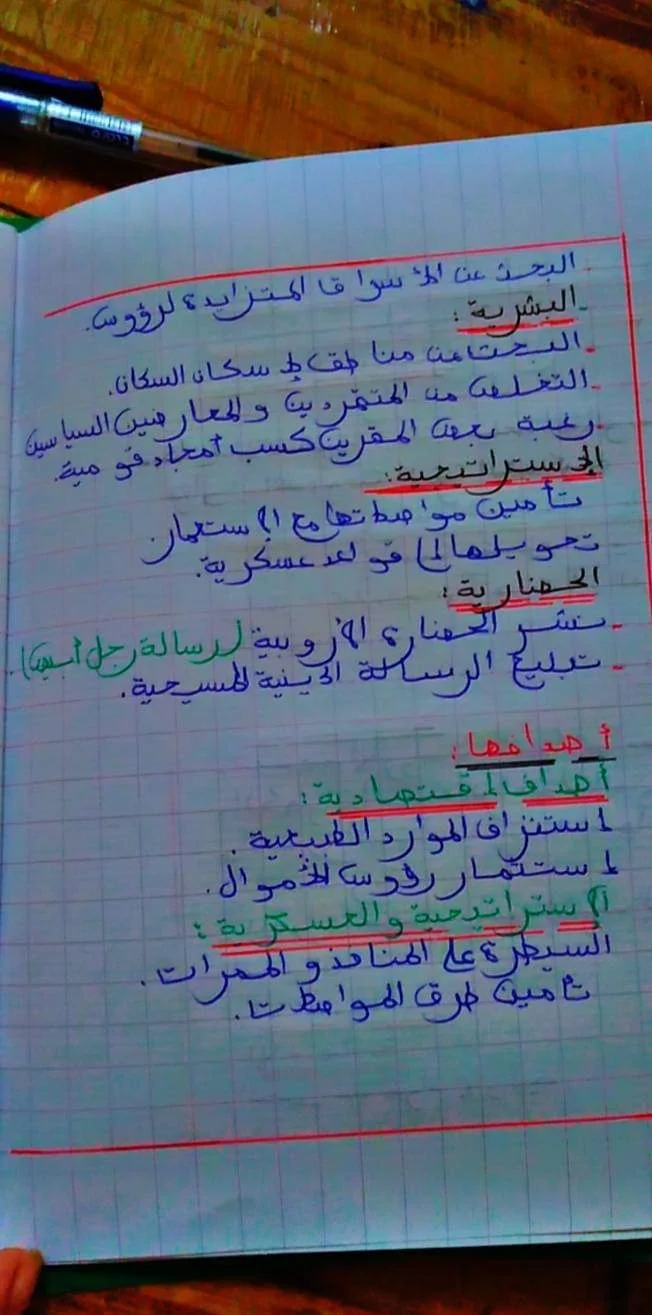 - البحث عن الأسواق المتزايدة لرؤوس.
- البشرية :
- البحث عن مناطق لإسكان السكان.
- التخلص من المتمردين والمعارضين السياسين
- رغبة بعض المقرين كسب أمجاد قومية.
الإستراتيجية :
تأمين مواصلاتها مع الإستعمار.
تحويلها إلى قواعد عسكرية.
الحضارية :
- نشر الحضارة الأروبية (رسالة رجل أبيض).
- تبليغ الرسالة الدينية المسيحية.
أهدافها :
أهداف إقتصادية :
إستنزاف الموارد الطبيعية.
إستثمار رؤوس الأموال.
الإستراتيجية والعسكرية :
السيطرة على المنافذ و الممرات.
تأمين طرق المواصلات.